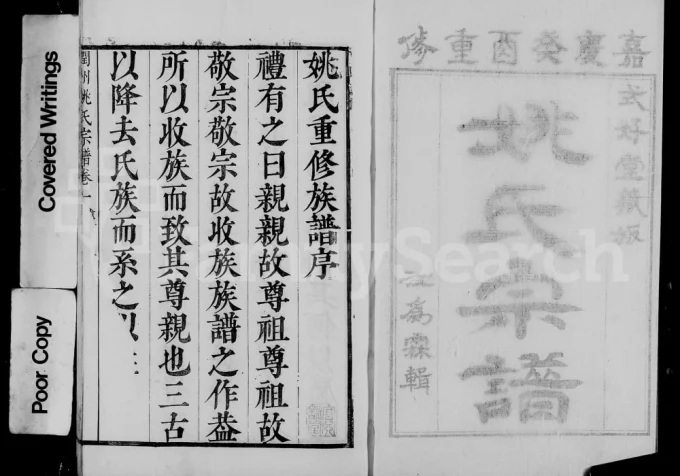 嘉慶癸酉重修
玄好堂藏板
姚氏宗譜
為霖輯
姚氏重修族譜序
禮有之曰親親故尊祖尊祖故
敬宗敬宗故收族族譜之作葢
所以收族而致其尊親也三古
以降去氏族而系之以
潤州姚氏宗譜卷一
Covered Writings
Poor Copy